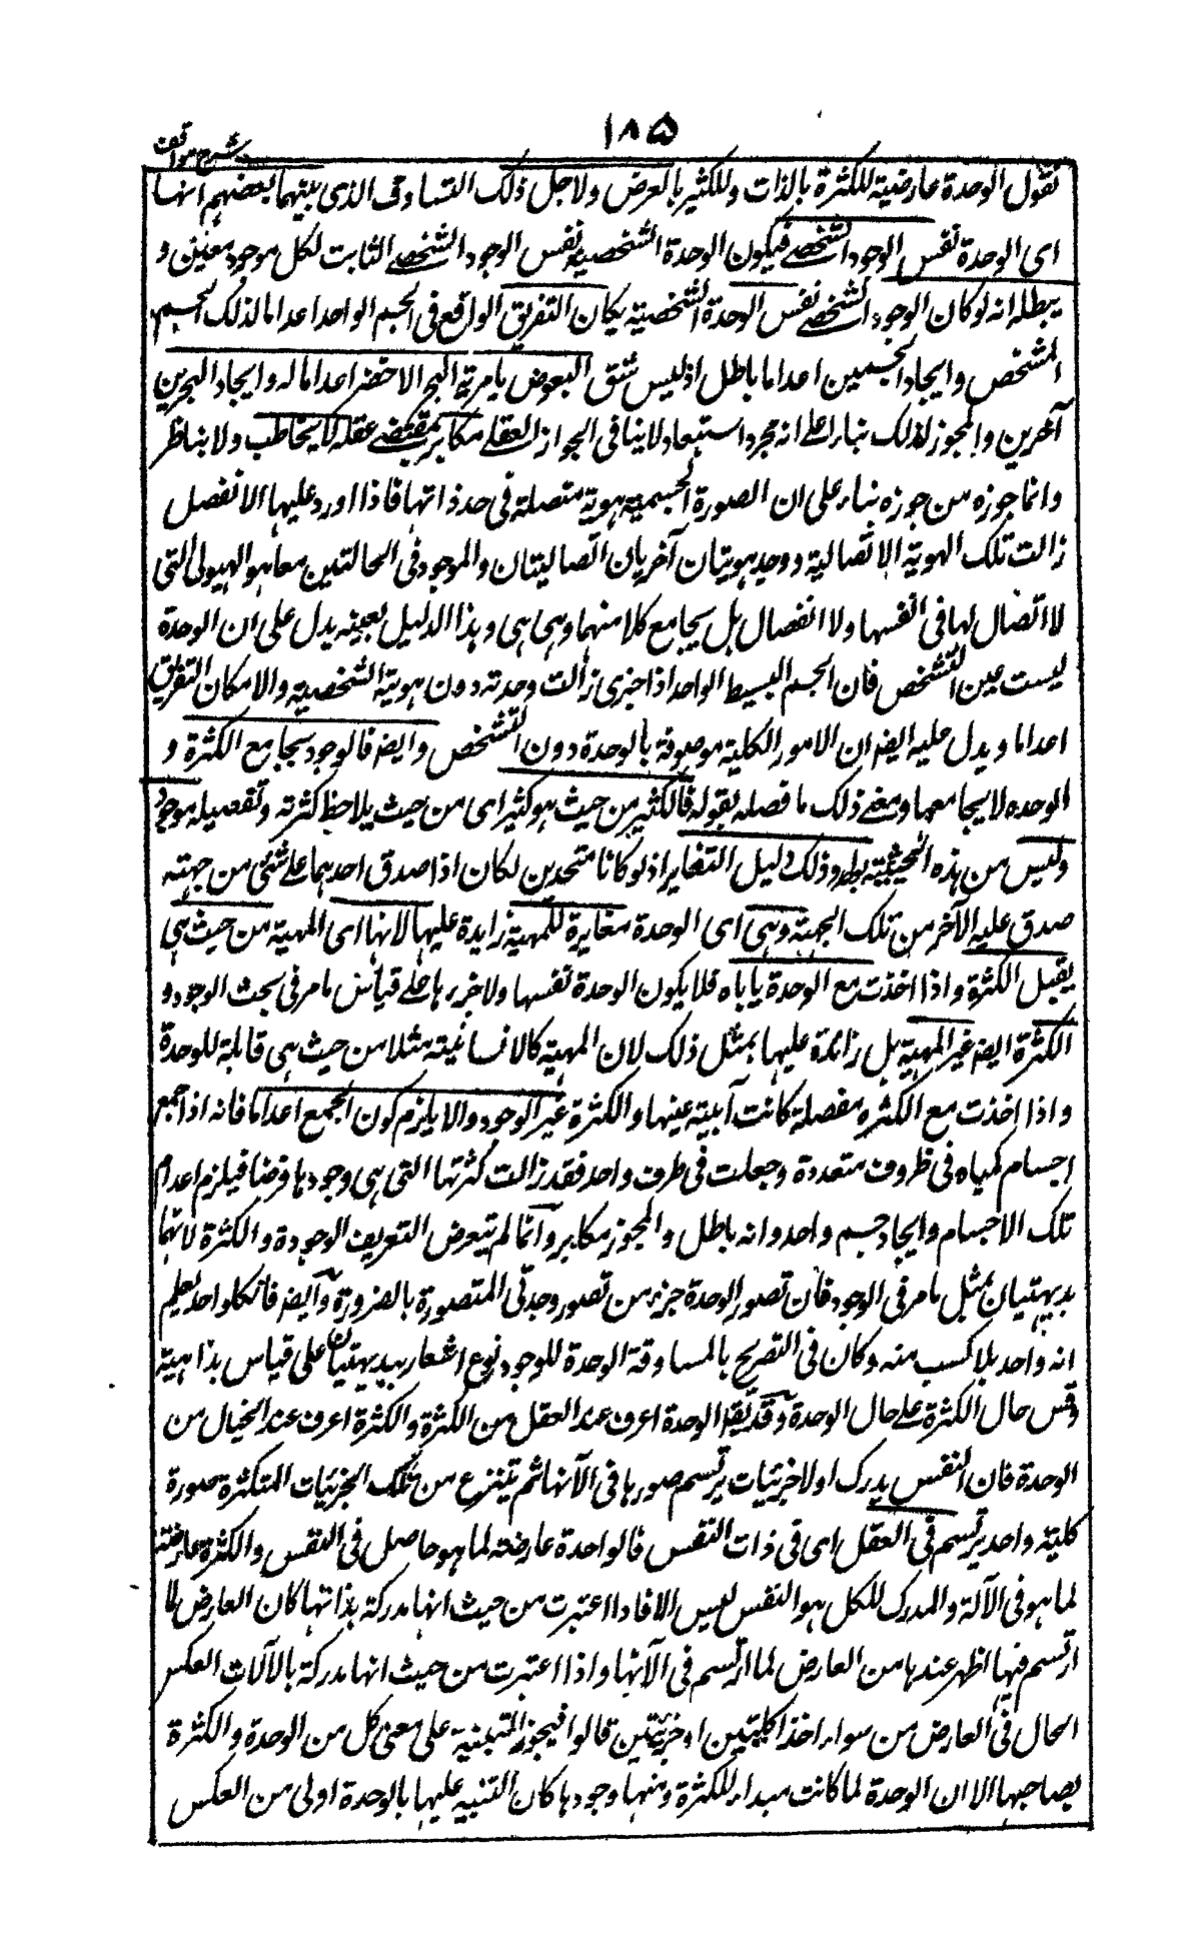 ١٨٥
شرح مواقف
نقول الوحدة عارضية للكثرة بالذات وللكثير بالعرض ولاجل ذلك التساوق الذى بينهما بعضهم انها
اى الوحدة نفس الوجود الشخصے فيكون الوحدة الشخصية نفس الوجود الشخصے الثابت لكل موجود معين و
يبطله انه لو كان الوجود الشخصے نفس الوحدة الشخصية يكان التفريق الواقع فى الجسم الواحد اعداما لذلك الجسم
المشخص وايجاد الجسمين اعداما باطل اذ ليس شق البعوض بابرته البحر الاخضر اعداما له وايجاد البحرين
آخرين والمجوز لذلك بناء على انه مجرد استبعاد لا ينافى الجواز العقلے مكابر بمقتضے عقله لا يخاطب ولا يناظر
وانما جوزه من جوزه بناء على ان الصورة الجسمية هوية متصلة فى حد ذاتها فاذا اورد عليها الانفصل
زالت تلك الهوية الاتصالية ووجد هويتان آخريان اتصاليتان والموجود فى الحالتين معا هو الهيولى التى
لا اتصال لها فى نفسها ولا انفصال بل يجامع كلا منهما وهى هى وهذا الدليل بعينه يدل على ان الوحدة
ليست عين التشخص فان الجسم البسيط الواحد اذا جزى زالت وحدته دون هويته الشخصية والا لكان التفريق
اعداما ويدل عليه ايضا ان الامور الكلية موصوفة بالوحدة دون التشخص وايضا فالوجود يجامع الكثرة و
الوحده لا يجامعها ومعنے ذلك ما فصله بقوله فالكثير من حيث هو كثير اى من حيث يلاحظ كثرته وتفصيله موجود
وليس من هذه الحيثية بواحد وذلك دليل التغاير اذ لو كانا متحدين لكان اذا صدق احدهما علے شئى من جهته
صدق عليه الآخر من تلك الجهة وهى اى الوحدة مغايرة للمهية زايدة عليها لانها اى المهية من حيث هى
يقبل الكثرة واذا اخذت مع الوحدة ياباه فلا يكون الوحدة نفسها ولا جزءها علے قياس ما مر فى بحث الوجود و
الكثرة ايضا غير المهية بل زائدة عليها بمثل ذلك لان المهية كالانسانيته مثلا من حيث هى قابلة للوحدة
واذا اخذت مع الكثره مفصلة كانت آبية عينها والكثرة غير الوجود والا يلزم كون الجمع اعداما فانه اذا جمع
اجسام كمياه فى ظروف متعددة وجعلت فى ظرف واحد فقد زالت كثرتها التى هى وجودها فرضا فيلزم اعدام
تلك الاجسام وايجاد جسم واحد وانه باطل والمجوز مكابر وانما لم يتعرض التعريف الوحدة والكثرة لانهما
بديهتيان بمثل ما مر فى الوجود فان تصور الوحدة جزء من تصور وحدتى المتصورة بالضرورة وايضا فانكل واحد يعلم
انه واحد بلا كسب منه وكان فى التصريح بالمساوقة الوحدة للوجود نوع اشعار ببديهتيان على قياس بداهية
وقس حال الكثرة علے حال الوحدة وقد يقال الوحدة اعرف عند العقل من الكثرة والكثرة اعرف عند الخيال من
الوحدة فان النفس يدرك اولا جزئيات يرتسم صورها فى الآتها ثم ينتزع من تلك الجزئيات المتكثرة صورة
كلية واحد يرتسم فى العقل اى فى ذات النفس فالواحدة عارضة لما هو حاصل فى النفس والكثرة عارضة
لما هو فى الآلة والمدرك للكل هو النفس ليس الا فاذا اعتبرت من حيث انها مدركة بذاتها كان العارض لما
ارتسم فيها اظهر عندها من العارض لما ارتسم فى الآتها واذا اعتبرت من حيث انها مدركة بالآلات العكس
الحال فى العارض من سواء اخذا كليتين او جزئيتين قالوا فيجوز التنبيه على معنى كل من الوحدة والكثرة
بصاحبها الا ان الوحدة لما كانت مبداء للكثرة ومنها وجودها كان التنبيه عليها بالوحدة اولى من العكس